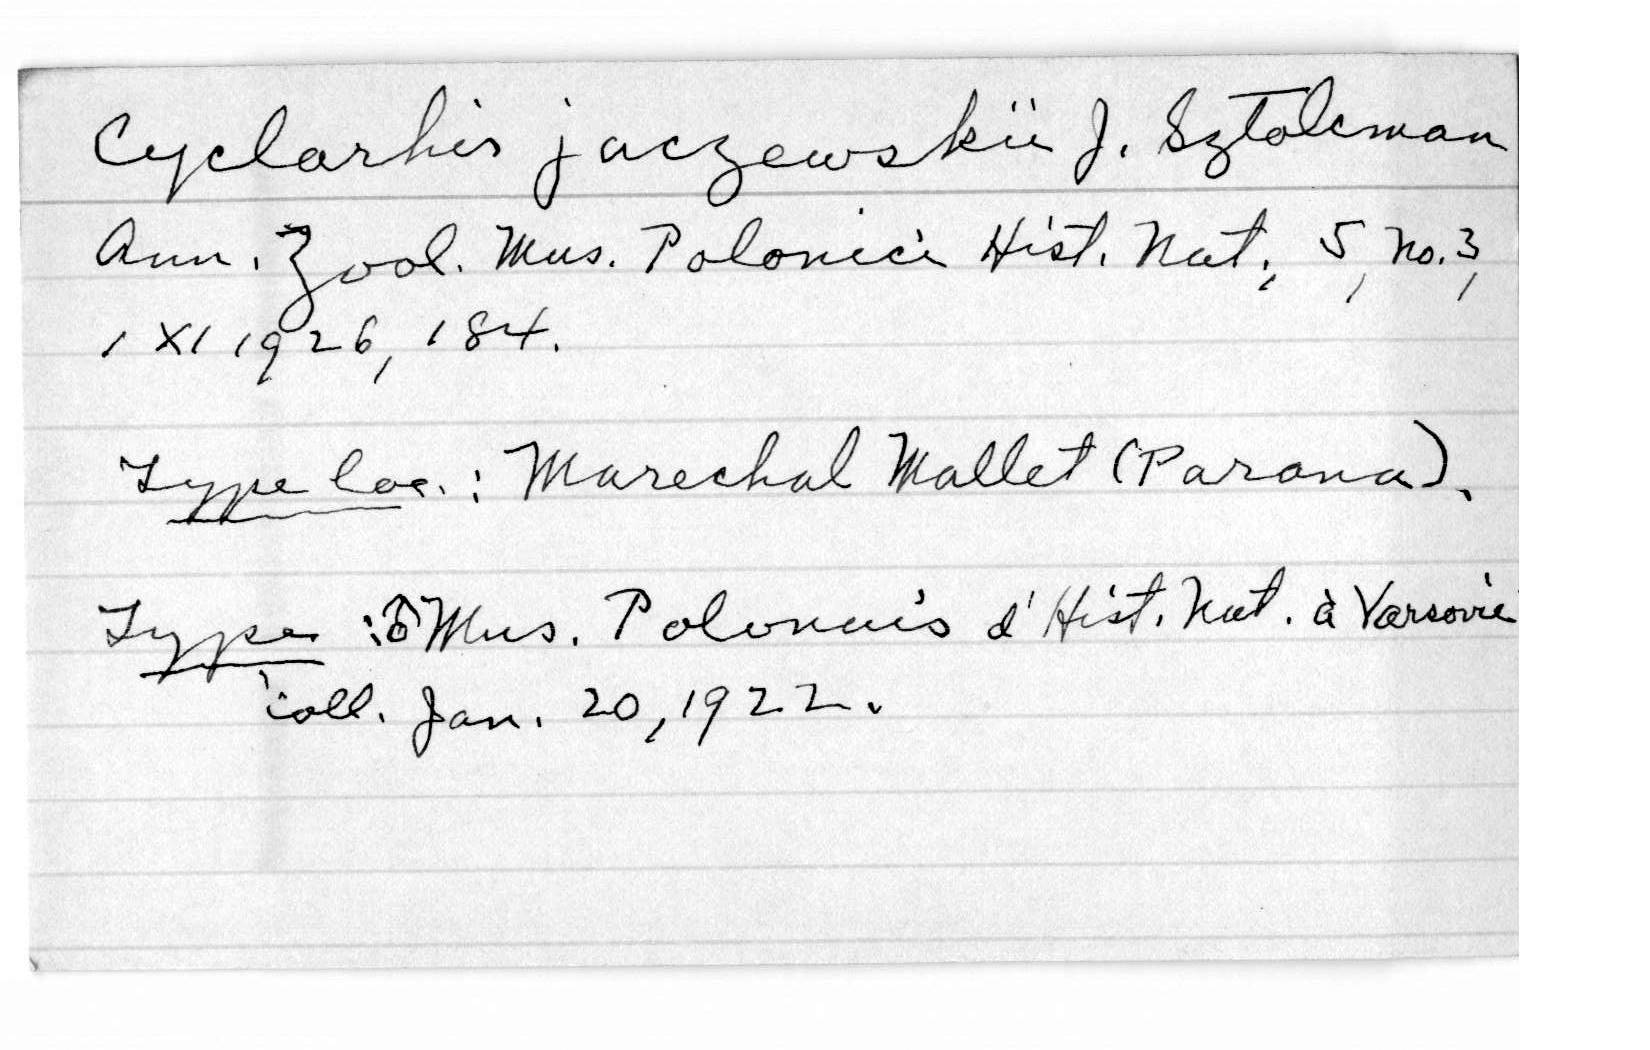 Cyclarhis jaczewskii J. Sztolcman
Ann. Zool. Mus. Polonici Hist. Nat., 5, no. 3,
1 XI 1926, 184.
Type loc. : Marechal Mallet (Parana).
Type : ♂ Mus. Polonais d'Hist. Nat. à Varsovie
coll. Jan. 20, 1922.